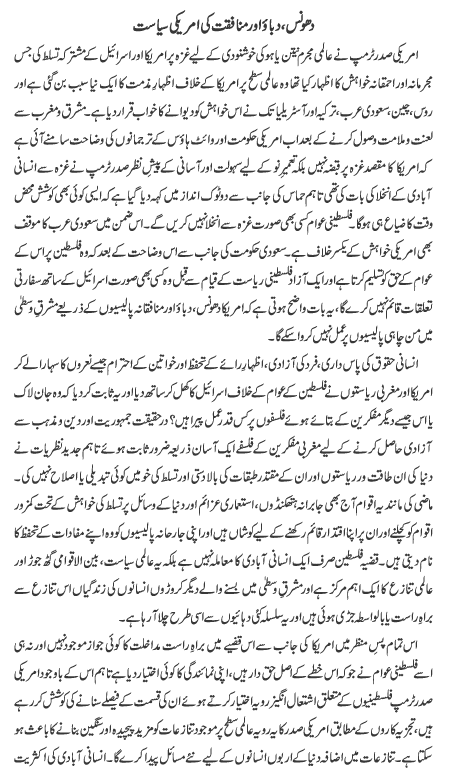 دھونس، دباؤ اور منافقت کی امریکی سیاست
امریکی صدر ٹرمپ نے عالمی مجرم نیتن یاہو کی خوشنودی کے لیے غزہ پر امریکا اور اسرائیل کے مشترکہ تسلط کی جس
مجرمانہ اور احمقانہ خواہش کا اظہار کیا تھا وہ عالمی سطح پر امریکا کے خلاف اظہارِ مذمت کا ایک نیا سبب بن گئی ہے اور
روس، چین، سعودی عرب، ترکیہ اور آسٹریلیا تک نے اس خواہش کو دیوانے کا خواب قرار دیا ہے۔ مشرق و مغرب سے
لعنت و ملامت وصول کرنے کے بعد اب امریکی حکومت اور وائٹ ہاؤس کے ترجمانوں کی وضاحت سامنے آئی ہے
کہ امریکا کا مقصد غزہ پر قبضہ نہیں بلکہ تعمیرِ نو کے لیے سہولت اور آسانی کے پیشِ نظر صدر ٹرمپ نے غزہ سے انسانی
آبادی کے انخلا کی بات کی تھی تاہم حماس کی جانب سے دو ٹوک انداز میں کہہ دیا گیا ہے کہ ایسی کوئی بھی کوشش محض
وقت کا ضیاع ہی ہوگا۔ فلسطینی عوام کسی بھی صورت غزہ سے انخلا نہیں کریں گے۔ اس ضمن میں سعودی عرب کا موقف
بھی امریکی خواہش کے یکسر خلاف ہے۔ سعودی حکومت کی جانب سے اس وضاحت کے بعد کہ وہ فلسطین پر اس کے
عوام کے حق کو تسلیم کرتا ہے اور ایک آزاد فلسطینی ریاست کے قیام سے قبل وہ کسی بھی صورت اسرائیل کے ساتھ سفارتی
تعلقات قائم نہیں کرے گا، یہ بات واضح ہوتی ہے کہ امریکا دھونس، دباؤ اور منافقانہ پالیسیوں کے ذریعے مشرقِ وسطیٰ
میں من چاہی پالیسیوں پر عمل نہیں کرواسکے گا۔
انسانی حقوق کی پاس داری، فرد کی آزادی، اظہارِ رائے کے تحفظ اور خواتین کے احترام جیسے نعروں کا سہارا لے کر
امریکا اور مغربی ریاستوں نے فلسطین کے عوام کے خلاف اسرائیل کا کھل کر ساتھ دیا اور یہ ثابت کردیا کہ وہ جان لاک
یا اس جیسے دیگر مفکرین کے بتائے ہوئے فلسفوں پر کس قدر عمل پیرا ہیں؟ درحقیقت جمہوریت اور دین و مذہب سے
آزادی حاصل کرنے کے لیے مغربی مفکرین کے فلسفے ایک آسان ذریعہ ضرور ثابت ہوئے تاہم جدید نظریات نے
دنیا کی ان طاقت ور ریاستوں اور ان کے مقتدر طبقات کی بالادستی اور تسلط کی خو میں کوئی تبدیلی یا اصلاح نہیں کی۔
ماضی کی مانند یہ اقوام آج بھی جابرانہ ہتھکنڈوں، استعماری عزائم اور دنیا کے وسائل پر تسلط کی خواہش کے تحت کمزور
اقوام کو کچلنے اور ان پر اپنا اقتدار قائم رکھنے کے لیے کوشاں ہیں اور اپنی جارحانہ پالیسیوں کو وہ اپنے مفادات کے تحفظ کا
نام دیتی ہیں۔ قضیہ فلسطین صرف ایک انسانی آبادی کا معاملہ نہیں ہے بلکہ یہ عالمی سیاست، بین الاقوامی گٹھ جوڑ اور
عالمی تنازع کا ایک اہم مرکز ہے اور مشرقِ وسطیٰ میں بسنے والے دیگر کروڑوں انسانوں کی زندگیاں اس تنازع سے
براہِ راست یا بالواسطہ جڑی ہوئی ہیں اور یہ سلسلہ کئی دہائیوں سے اسی طرح چلا آرہا ہے۔
اس تمام پس منظر میں امریکا کی جانب سے اس قضیے میں براہِ راست مداخلت کا کوئی جواز موجود نہیں اور نہ ہی
اسے فلسطینی عوام نے جو کہ اس خطے کے اصل حق دار ہیں، اپنی نمائندگی کا کوئی اختیار دیا ہے تاہم اس کے باوجود امریکی
صدر ٹرمپ فلسطینیوں کے متعلق اشتعال انگیز رویہ اختیار کرتے ہوئے ان کی قسمت کے فیصلے سنانے کی کوشش کر رہے
ہیں، تجزیہ کاروں کے مطابق امریکی صدر کا یہ رویہ عالمی سطح پر موجود تنازعات کو مزید پیچیدہ اور سنگین بنانے کا باعث ہو
سکتا ہے۔ تنازعات میں اضافہ دنیا کے اربوں انسانوں کے لیے نئے مسائل پیدا کرے گا۔ انسانی آبادی کی اکثریت